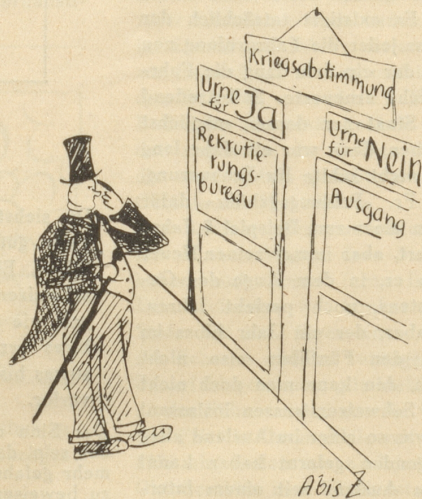 Kriegsabstimmung
Urne für Ja
Rekrutie-
rungs-
bureau
Urne für Nein
Ausgang
Abis Z